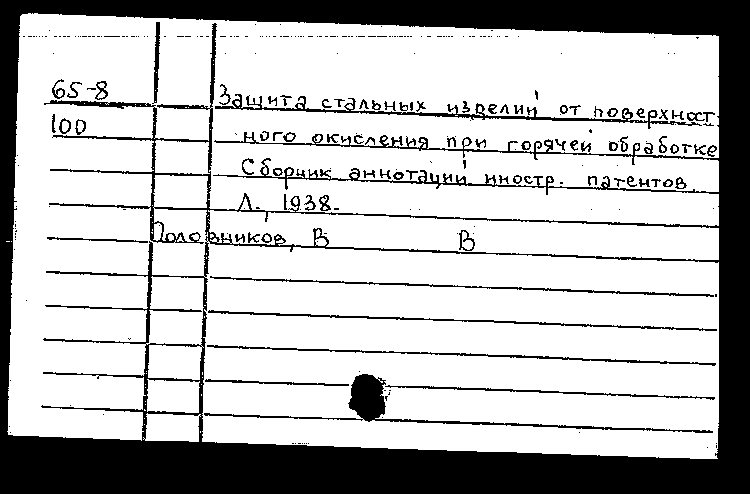 65-8 Защита стальных изделий от поверхност
100 ного окисления при горячей обработке
Сборник аннотаций иностр. патентов.
Л., 1938.
Половников, В В